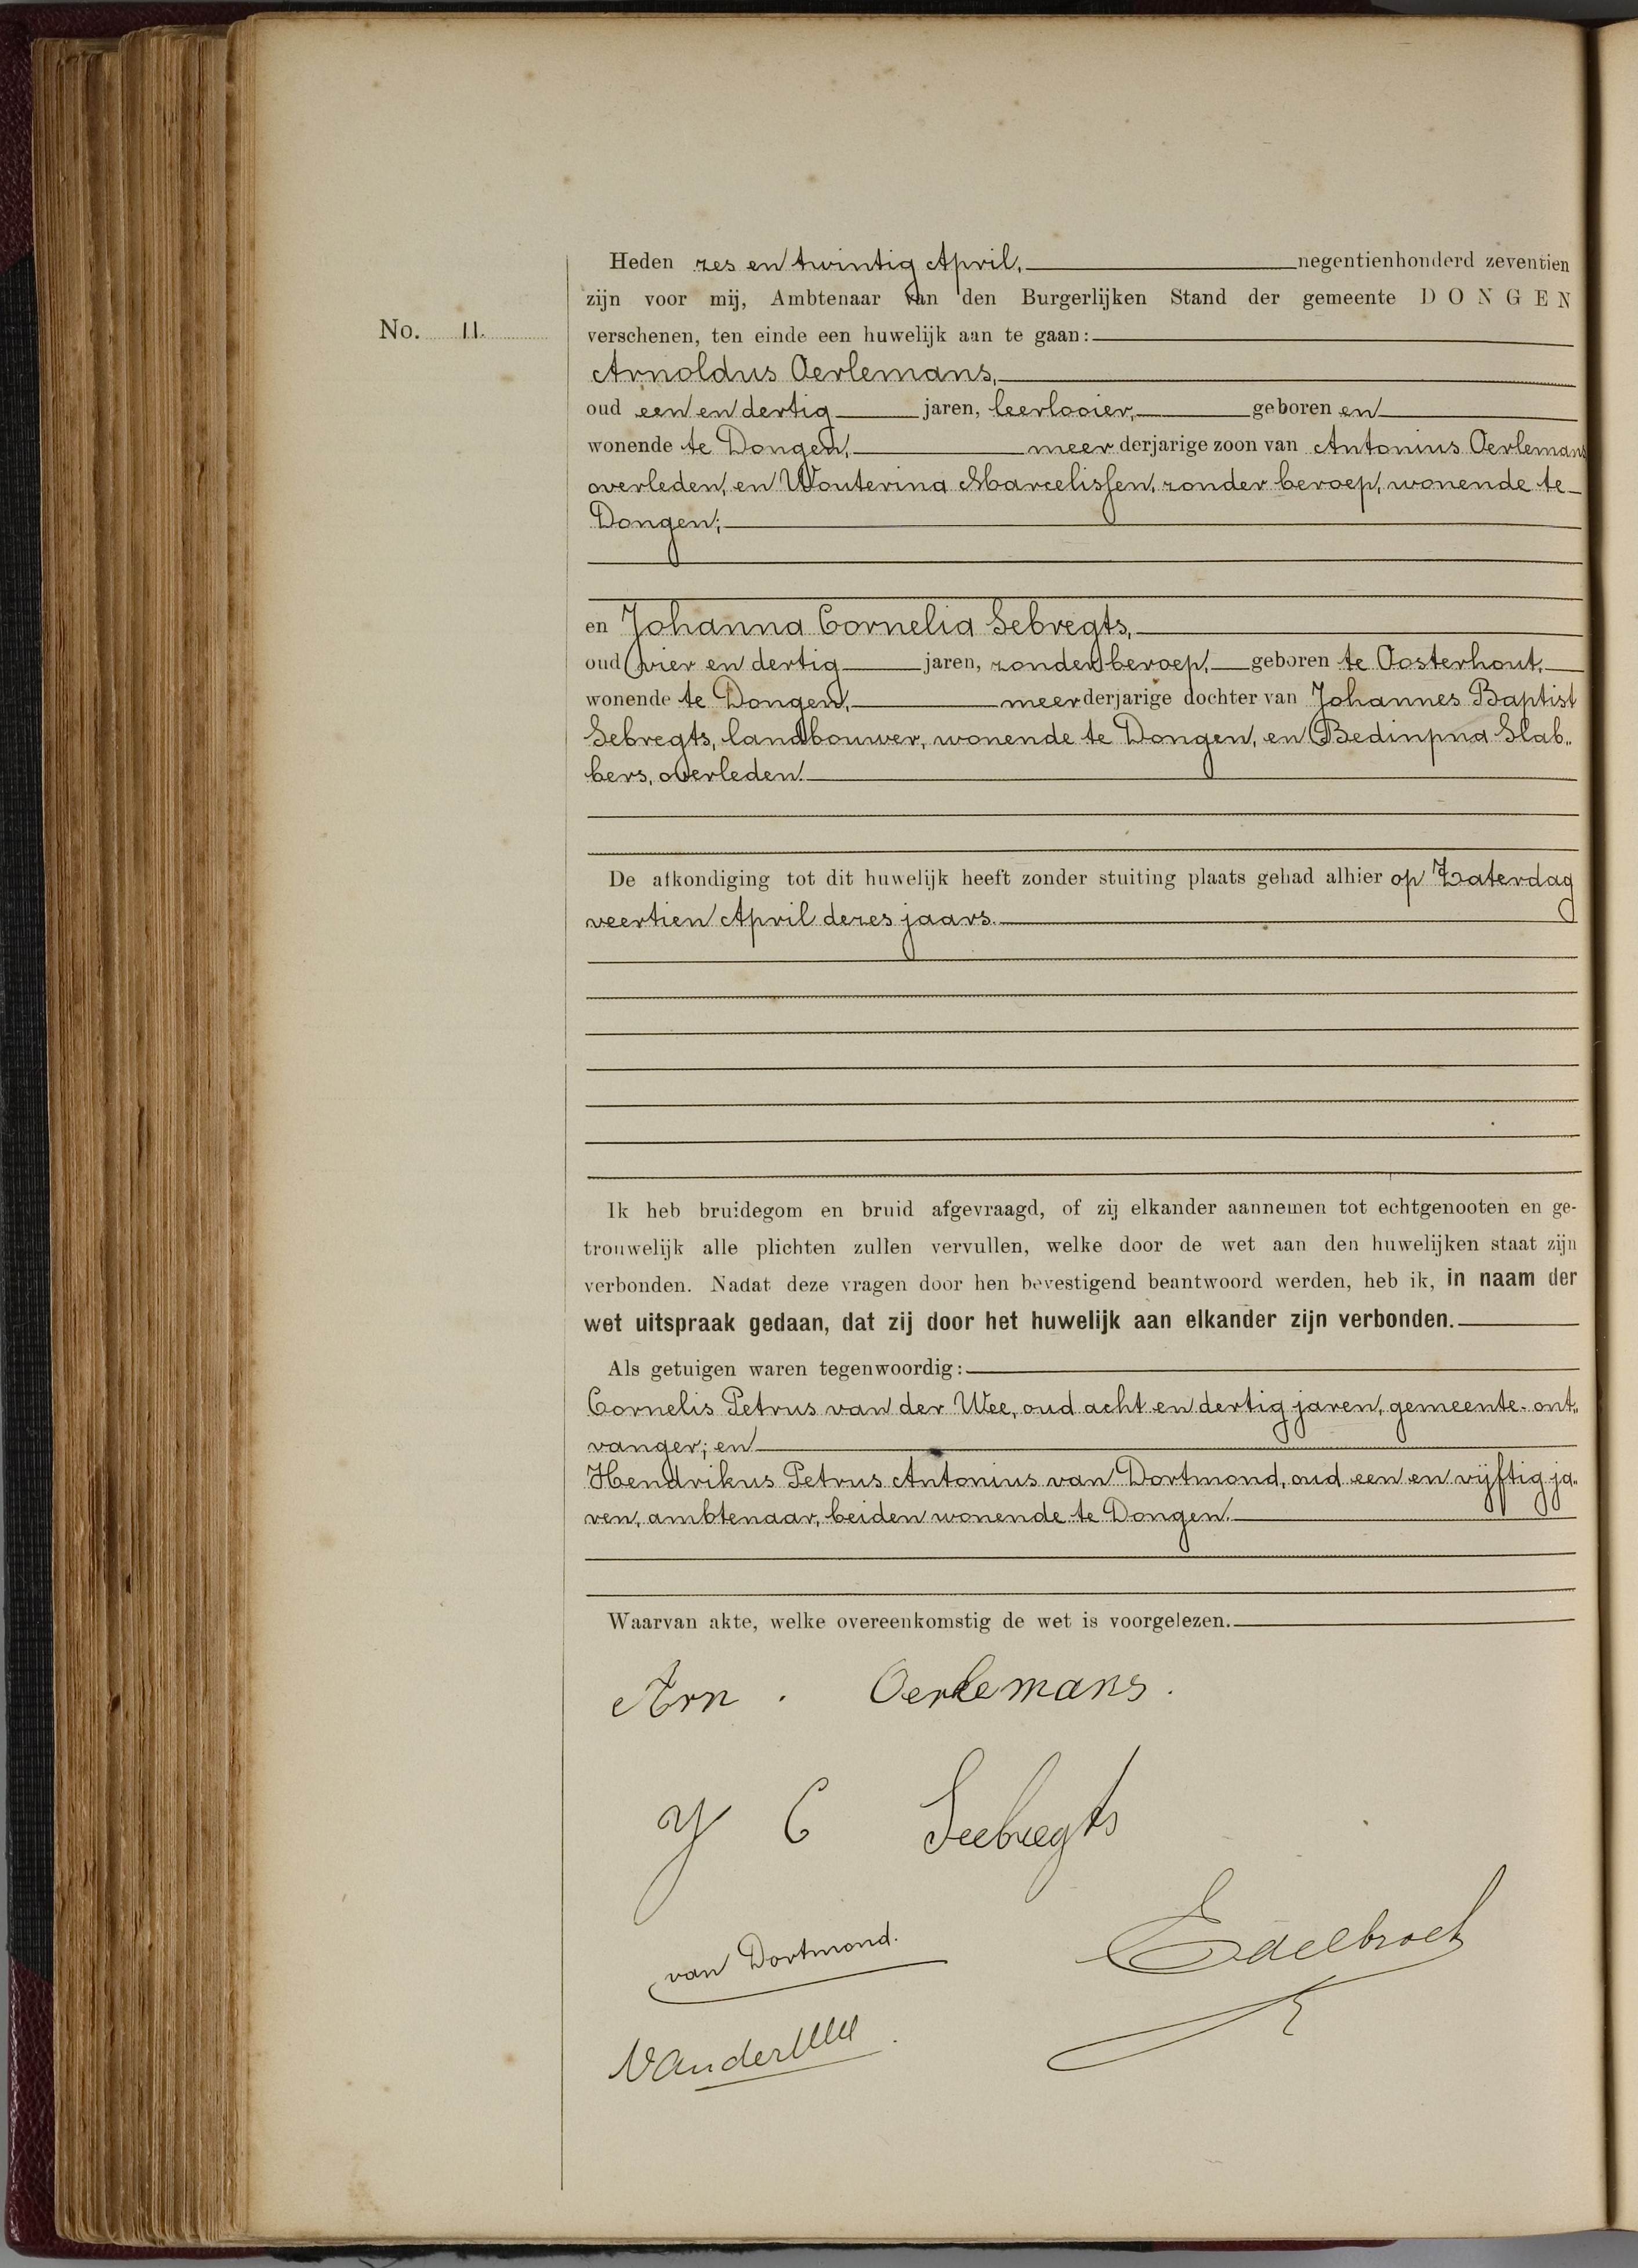 Heden zes en twintig April, negentienhonderd zeventien
zijn voor mij, Ambtenaar van den Burgerlijken Stand der gemeente DONGEN
No. 11.
verschenen, ten einde een huwelijk aan te gaan:
Arnoldus Oerlemans,
oud een en dertig jaren, leerlooier, geboren en
wonende te Dongen, meerderjarige zoon van Antonius Oerlemans
overleden, en Wouterina Marcelissen, zonder beroep, wonende te
Dongen;
en Johanna Cornelia Sebregts,
oud vier en dertig jaren, zonder beroep, geboren te Oosterhout,
wonende te Dongen, meerderjarige dochter van Johannes Baptist
Sebregts, landbouwer, wonende te Dongen, en Bedinpna Slab„
bers, overleden.
De afkondiging tot dit huwelijk heeft zonder stuiting plaats gehad alhier op Zaterdag
veertien April dezes jaars.
Ik heb bruidegom en bruid afgevraagd, of zij elkander aannemen tot echtgenooten en ge-
trouwelijk alle plichten zullen vervullen, welke door de wet aan den huwelijken staat zijn
verbonden. Nadat deze vragen door hen bevestigend beantwoord werden, heb ik, in naam der
wet uitspraak gedaan, dat zij door het huwelijk aan elkander zijn verbonden.
Als getuigen waren tegenwoordig:
Cornelis Petrus van der Wee, oud acht en dertig jaren, gemeente-ont„
vanger; en
Hendrikus Petrus Antonius van Dortmond, oud een en vijftig ja„
ren, ambtenaar, beiden wonende te Dongen.
Waarvan akte, welke overeenkomstig de wet is voorgelezen.
Arn. Oerlemans.
J C Seebregts
van Dortmond.
Edelbroek
VanderWee.